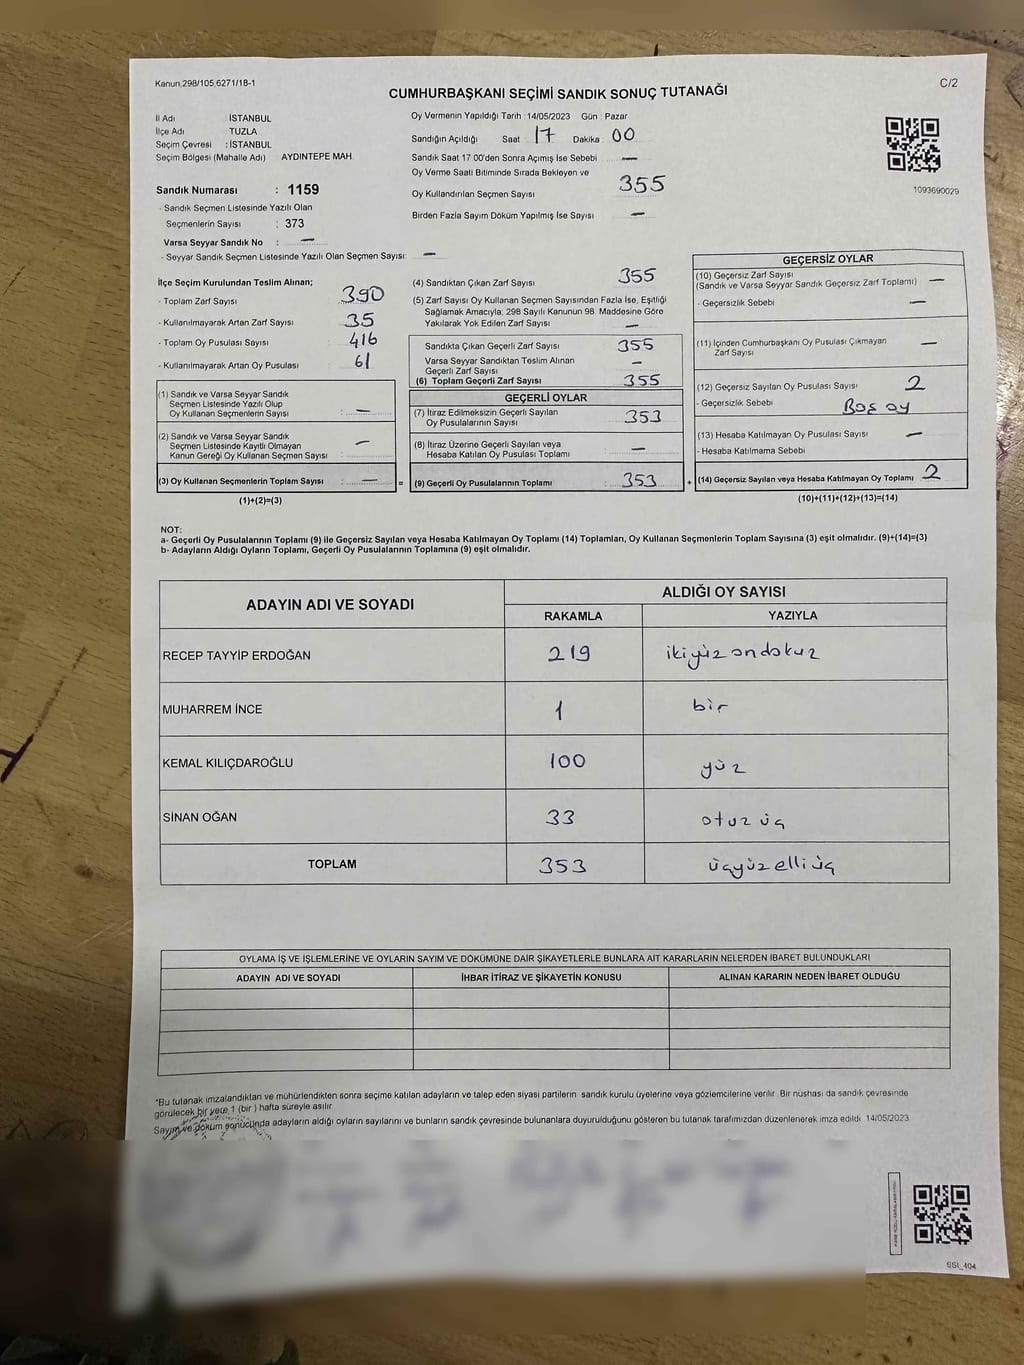 Kanun 298/105,6271/18-1
C/2
CUMHURBAŞKANI SEÇİMİ SANDIK SONUÇ TUTANAĞI
İl Adı İSTANBUL
İlçe Adı TUZLA
Seçim Çevresi : İSTANBUL
Seçim Bölgesi (Mahalle Adı) AYDINTEPE MAH.
Sandık Numarası : 1159
- Sandık Seçmen Listesinde Yazılı Olan
Seçmenlerin Sayısı : 373
Varsa Seyyar Sandık No : —
- Seyyar Sandık Seçmen Listesinde Yazılı Olan Seçmen Sayısı: —
Oy Vermenin Yapıldığı Tarih : 14/05/2023 Gün : Pazar
Sandığın Açıldığı Saat 17 Dakika 00
Sandık Saat 17:00'den Sonra Açımış İse Sebebi —
Oy Verme Saati Bitiminde Sırada Bekleyen ve
Oy Kullandırılan Seçmen Sayısı 355
Birden Fazla Sayım Döküm Yapılmış İse Sayısı —
1093690029
İlçe Seçim Kurulundan Teslim Alınan;
- Toplam Zarf Sayısı 390
- Kullanılmayarak Artan Zarf Sayısı 35
- Toplam Oy Pusulası Sayısı 416
- Kullanılmayarak Artan Oy Pusulası 61
(1) Sandık ve Varsa Seyyar Sandık
Seçmen Listesinde Yazılı Olup
Oy Kullanan Seçmenlerin Sayısı : —
(2) Sandık ve Varsa Seyyar Sandık
Seçmen Listesinde Kayıtlı Olmayan
Kanun Gereği Oy Kullanan Seçmen Sayısı : —
(3) Oy Kullanan Seçmenlerin Toplam Sayısı : — =
(1)+(2)=(3)
(4) Sandıktan Çıkan Zarf Sayısı 355
(5) Zarf Sayısı Oy Kullanan Seçmen Sayısından Fazla İse, Eşitliği
Sağlamak Amacıyla; 298 Sayılı Kanunun 98. Maddesine Göre
Yakılarak Yok Edilen Zarf Sayısı —
Sandıkta Çıkan Geçerli Zarf Sayısı 355
Varsa Seyyar Sandıktan Teslim Alınan
Geçerli Zarf Sayısı —
(6) Toplam Geçerli Zarf Sayısı 355
GEÇERLİ OYLAR
(7) İtiraz Edilmeksizin Geçerli Sayılan
Oy Pusulalarının Sayısı : 353
(8) İtiraz Üzerine Geçerli Sayılan veya
Hesaba Katılan Oy Pusulası Toplamı : —
(9) Geçerli Oy Pusulalarının Toplamı : 353 +
GEÇERSİZ OYLAR
(10) Geçersiz Zarf Sayısı
(Sandık ve Varsa Seyyar Sandık Geçersiz Zarf Toplamı) —
- Geçersizlik Sebebi —
(11) İçinden Cumhurbaşkanı Oy Pusulası Çıkmayan
Zarf Sayısı —
(12) Geçersiz Sayılan Oy Pusulası Sayısı 2
- Geçersizlik Sebebi Boş oy
(13) Hesaba Katılmayan Oy Pusulası Sayısı —
- Hesaba Katılmama Sebebi
(14) Geçersiz Sayılan veya Hesaba Katılmayan Oy Toplamı 2
(10)+(11)+(12)+(13)=(14)
NOT:
a- Geçerli Oy Pusulalarının Toplamı (9) ile Geçersiz Sayılan veya Hesaba Katılmayan Oy Toplamı (14) Toplamları, Oy Kullanan Seçmenlerin Toplam Sayısına (3) eşit olmalıdır. (9)+(14)=(3)
b- Adayların Aldığı Oyların Toplamı, Geçerli Oy Pusulalarının Toplamına (9) eşit olmalıdır.
ADAYIN ADI VE SOYADI ALDIĞI OY SAYISI
RAKAMLA YAZIYLA
RECEP TAYYİP ERDOĞAN 219 ikiyüz ondokuz
MUHARREM İNCE 1 bir
KEMAL KILIÇDAROĞLU 100 yüz
SİNAN OĞAN 33 otuz üç
TOPLAM 353 üçyüz elli üç
OYLAMA İŞ VE İŞLEMLERİNE VE OYLARIN SAYIM VE DÖKÜMÜNE DAİR ŞİKAYETLERLE BUNLARA AİT KARARLARIN NELERDEN İBARET BULUNDUKLARI
ADAYIN ADI VE SOYADI İHBAR İTİRAZ VE ŞİKAYETİN KONUSU ALINAN KARARIN NEDEN İBARET OLDUĞU
*Bu tutanak imzalandıktan ve mühürlendikten sonra seçime katılan adayların ve talep eden siyasi partilerin sandık kurulu üyelerine veya gözlemcilerine verilir. Bir nüshası da sandık çevresinde
görülecek bir yere 1 (bir ) hafta süreyle asılır.
Sayım ve döküm sonucunda adayların aldığı oyların sayılarını ve bunların sandık çevresinde bulunanlara duyurulduğunu gösteren bu tutanak tarafımızdan düzenlenerek imza edildi. 14/05/2023